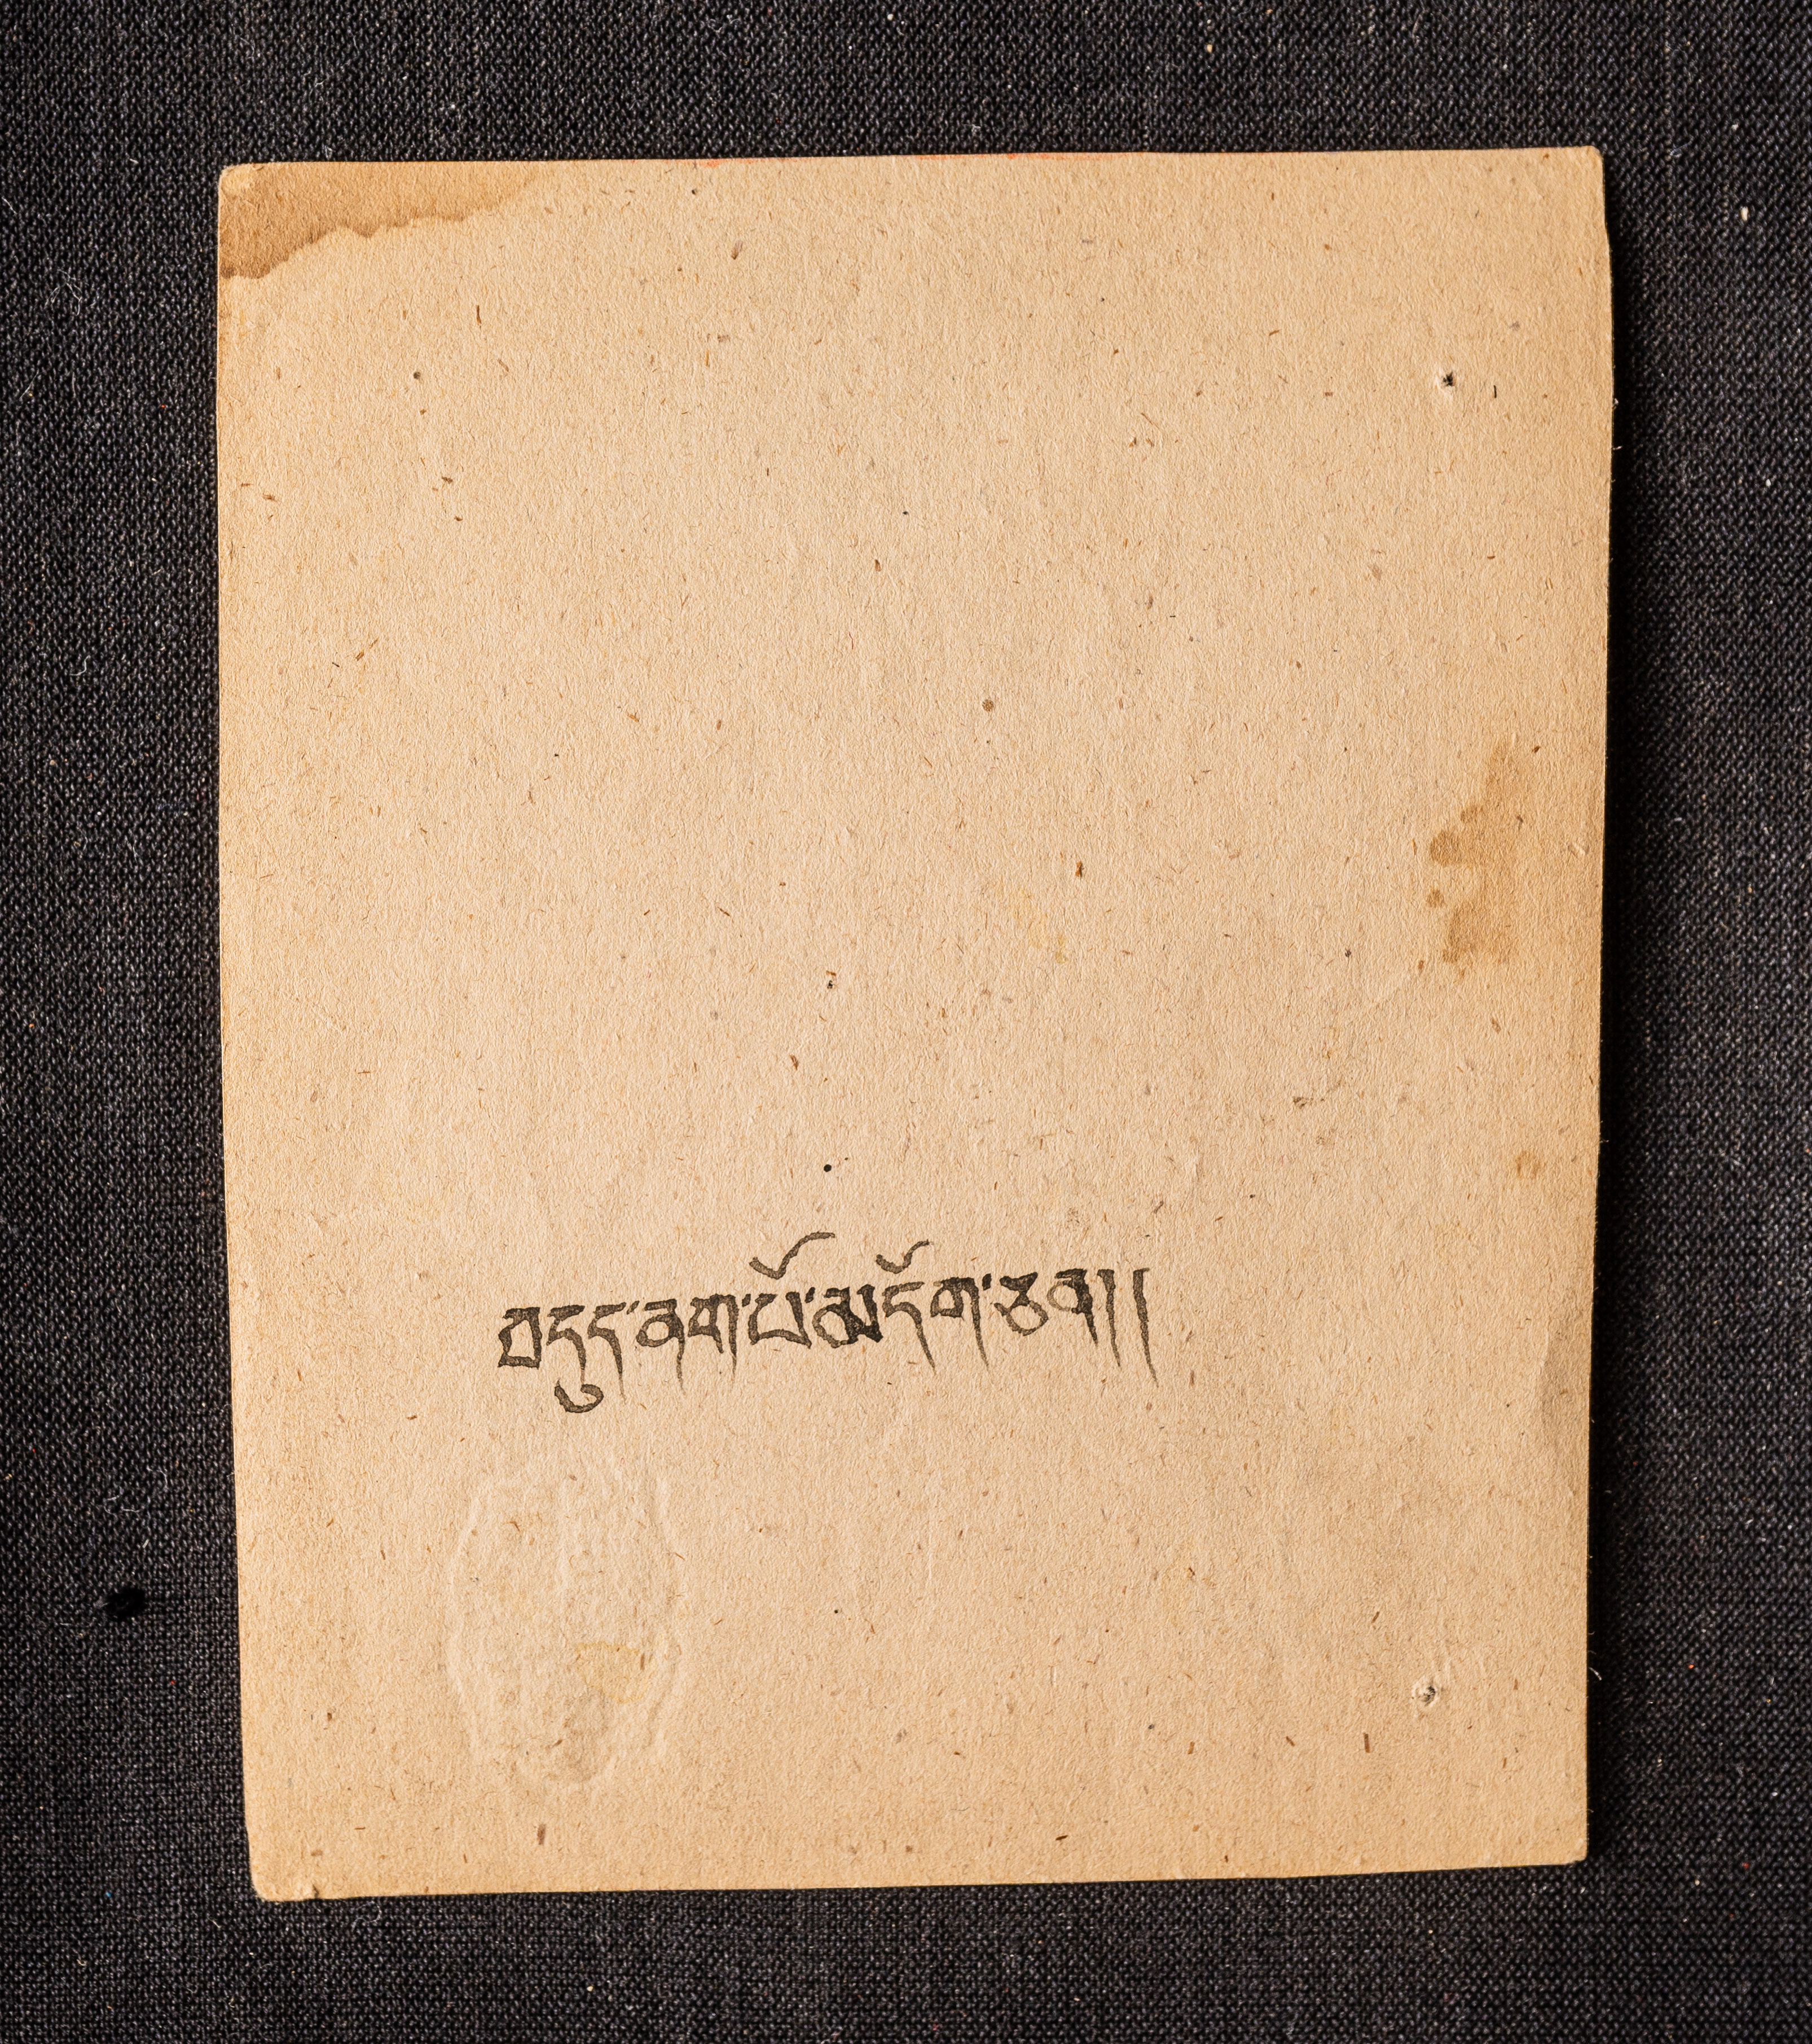 བདུད་ནག་པོ་མདོག་ཅན།།